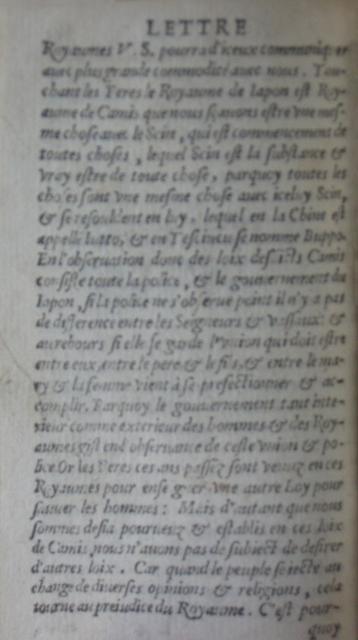 LETTRE
Royaumes V. S. pourra d'iceux communiquer
auec plus grande commodité auec nous. Tou-
chant les Peres le Royaume de Iapon est Roy-
aume de Camis que nous sçauons estre vne mes-
me chose auec le Scin, qui est commencement de
toutes choses, lequel Scin est la substance &
vray estre de toute chose, parquoy toutes les
choses sont vne mesme chose auec iceluy Scin,
& se resoluent en luy, lequel en la Chine est
appellé Iutto, & en Tescincu se nomme Buppo.
En l'obseruation donc des loix desdicts Camis
consiste toute la police, & le gouuernement du
Iapon, si la police ne s'obserue point il n'y a pas
de difference entre les Seigneurs & vassaux: &
au rebours si elle se garde l'vnion qui doit estre
entre eux, entre le pere & le fils, & entre le ma-
ry & la femme vient à se perfectionner & ac-
complir. Parquoy le gouuernement tant inte-
rieur comme exterieur des hommes & des Roy-
aumes gist en l'obseruance de ceste vnion & po-
lice. Or les Peres ces ans passez sont venuz en ces
Royaumes pour enseigner vne autre Loy pour
sauuer les hommes: Mais d'autant que nous
sommes desia pourueuz & establis en ces loix
de Camis, nous n'auons pas de subiect de desirer
d'autres loix. Car quand le peuple se iecte au
change de diuerses opinions & religions, cela
tourne au preiudice du Royaume. C'est pour-
quoy